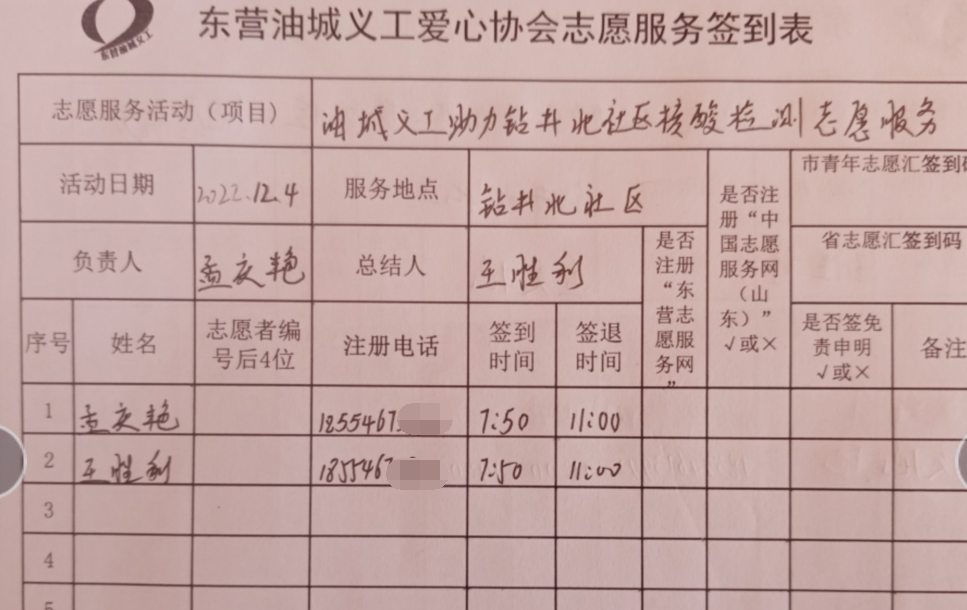 东营油城义工
东营油城义工爱心协会志愿服务签到表
志愿服务活动（项目） 油城义工助力钻井北社区核酸检测志愿服务
活动日期 2022.12.4 服务地点 钻井北社区
负责人 孟庆艳 总结人 王胜利
是否
注册
“东
营志
愿服
务网
”
是否注
册“中
国志愿
服务网
（山
东）”
√或×
市青年志愿汇签到码
省志愿汇签到码
序号 姓名 志愿者编
号后4位
注册电话 签到
时间
签退
时间
是否签免
责申明
√或×
备注
1 孟庆艳 1855467 7:50 11:00
2 王胜利 1855467 7:50 11:00
3
4
5